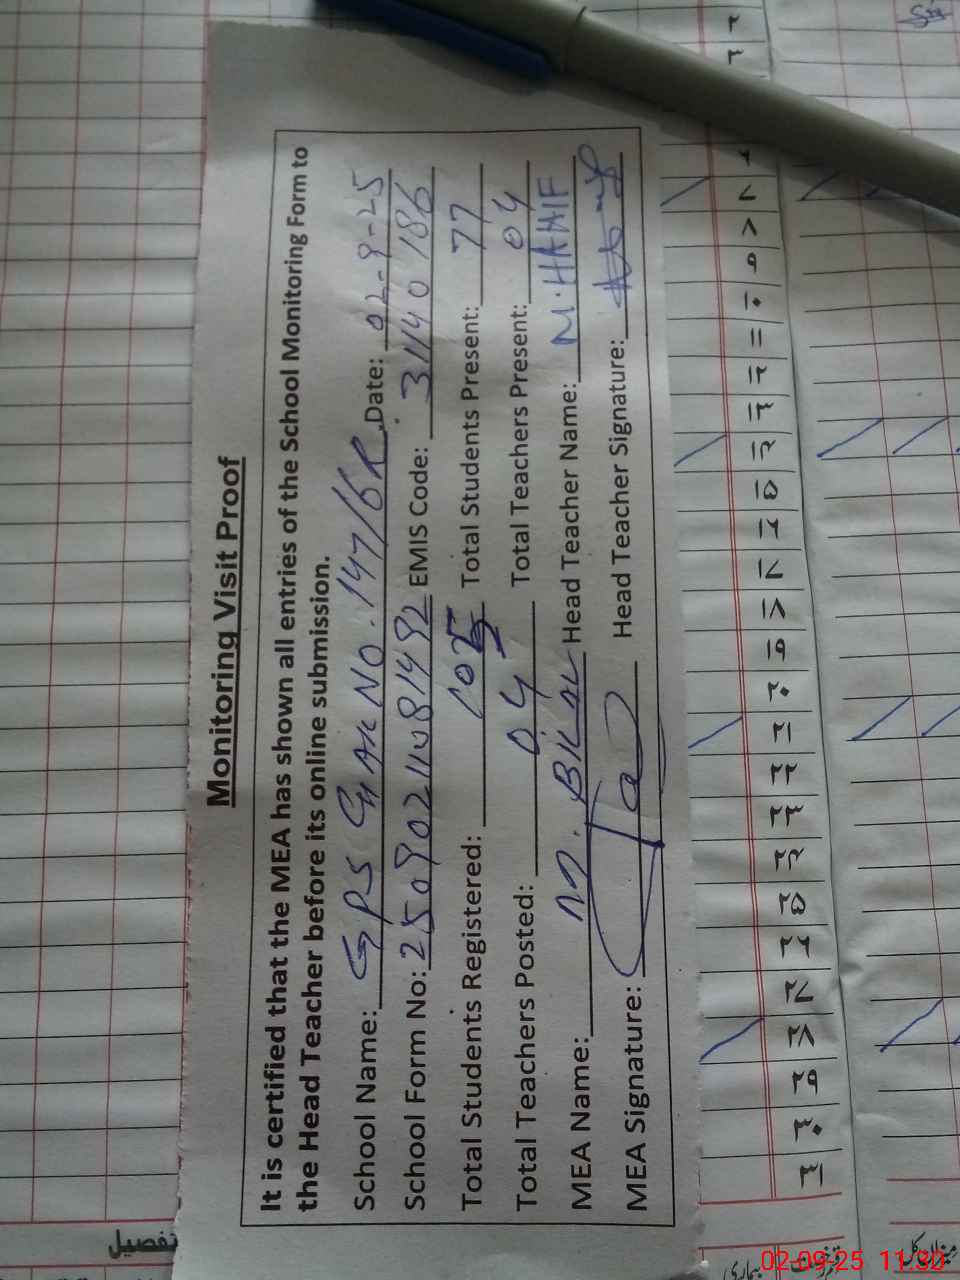 Monitoring Visit Proof
It is certified that the MEA has shown all entries of the School Monitoring Form to
the Head Teacher before its online submission.
School Name: GPS CHAK NO. 147/6R Date: 02-9-25
School Form No: EMIS Code: 31140186
Total Students Registered: 105 Total Students Present: 77
Total Teachers Posted: 04 Total Teachers Present: 04
MEA Name: M. BILAL Head Teacher Name: M. HANIF
MEA Signature: Head Teacher Signature:
تفصیل
بیماری
میزان کل
۷
۸
۹
۱۰
۱۱
۱۲
۱۳
۱۴
۱۵
۱۶
۱۷
۱۸
۱۹
۲۰
۲۱
۲۲
۲۳
۲۴
۲۵
۲۶
۲۷
۲۸
۲۹
۳۰
۳۱
02-09-25 11:30